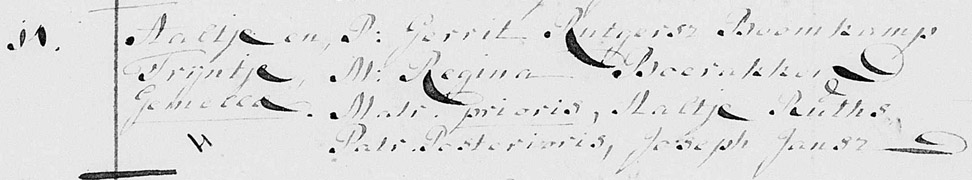 11. Aaltje en, P: Gerrit Rutgersz Boomkamp
Trijntje, M: Regina Boerakker
Gemelle. Matr. prioris, Aaltje Ruths,
Patr. Posterioris, Joseph Jansz